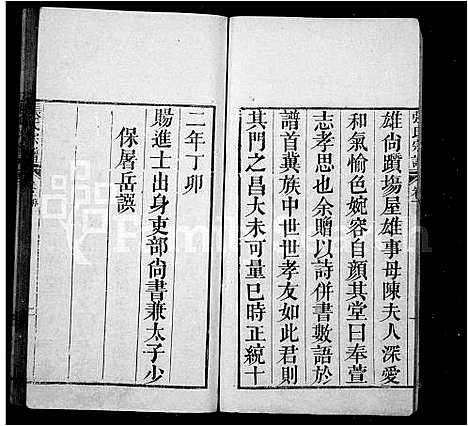 雄尙躓場屋雄事母陳夫人深愛
和氣愉色婉容自顔其堂曰奉萱
志孝思也余贈以詩併書數語於
譜首冀族中世世孝友如此君則
其門之昌大未可量巳時正統十
二年丁卯
賜進士出身吏部尙書兼太子少
保屠岳譔